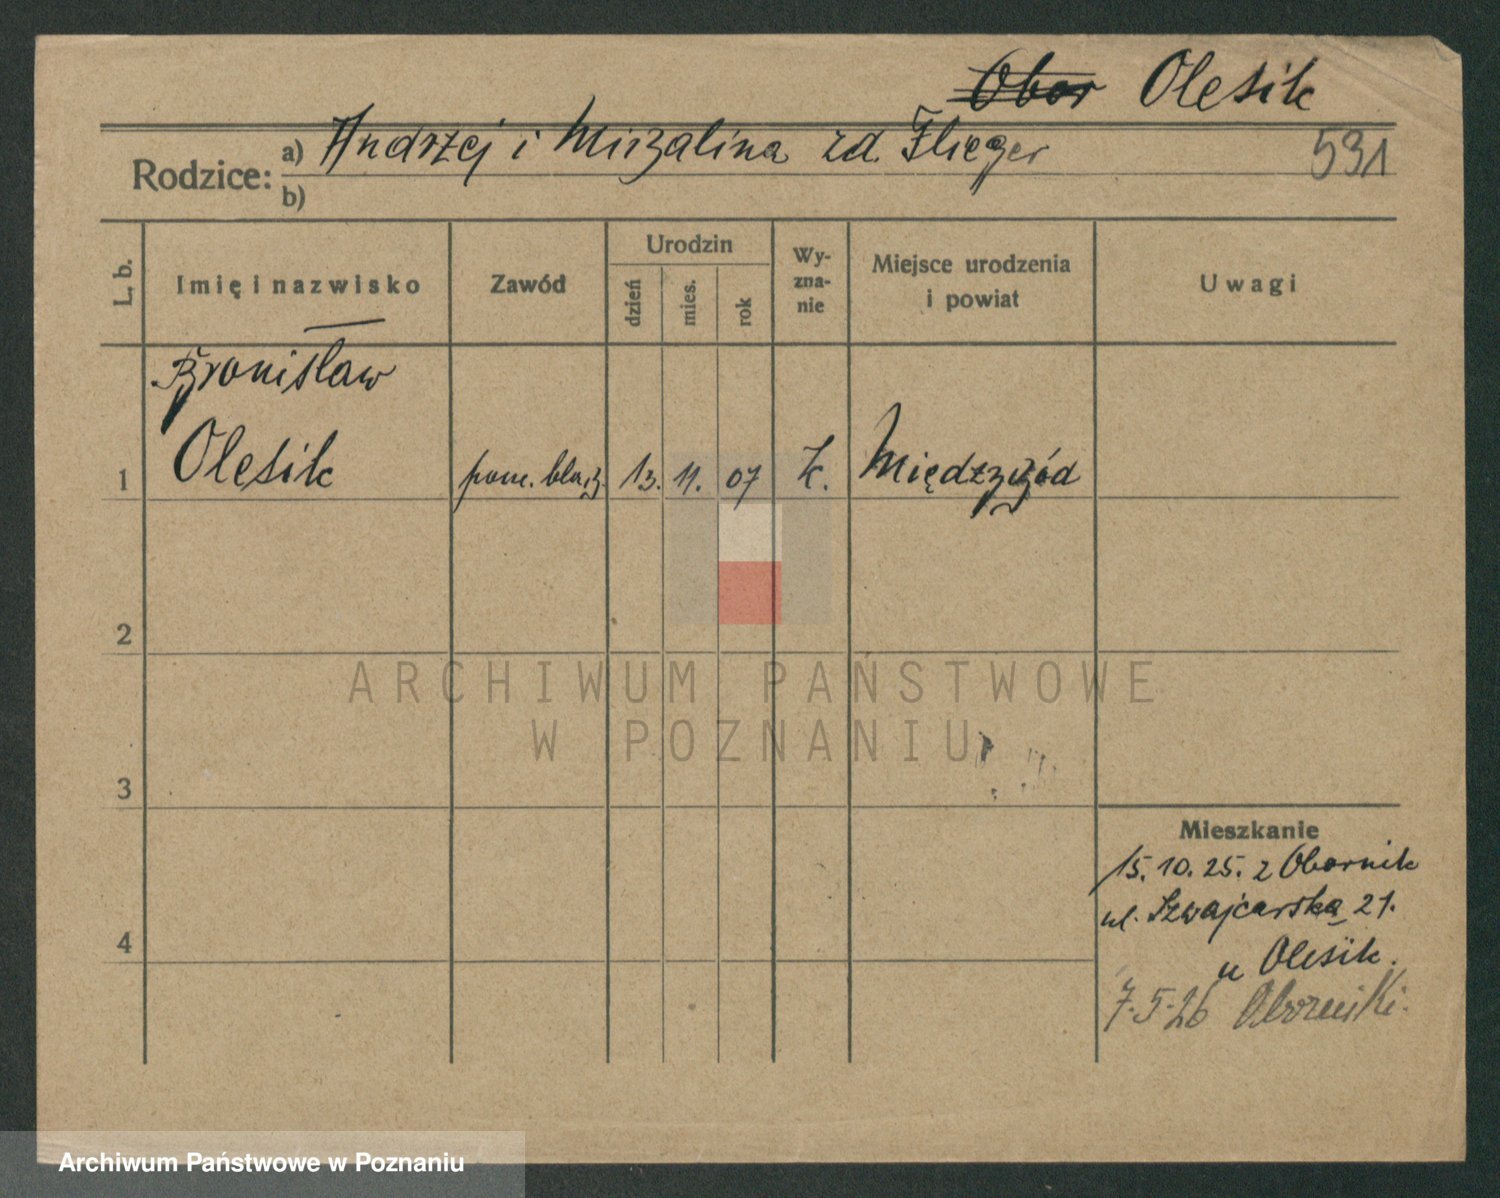 Obor Olesik
Rodzice: a) Andrzej i Michalina zd. Flieger 591
b)
L. b. Imię i nazwisko Zawód Urodzin dzień mies. rok Wyznanie Miejsce urodzenia i powiat Uwagi
Bronisław
1 Olesik pom. 13. 11. 07 k. Międzychód
2
ARCHIWUM PAŃSTWOWE
W POZNANIU
3
Mieszkanie
15. 10. 25. z Obornik
ul. Szwajcarska 21.
4
u Olesik.
7.5.26 Oborniki.
Archiwum Państwowe w Poznaniu